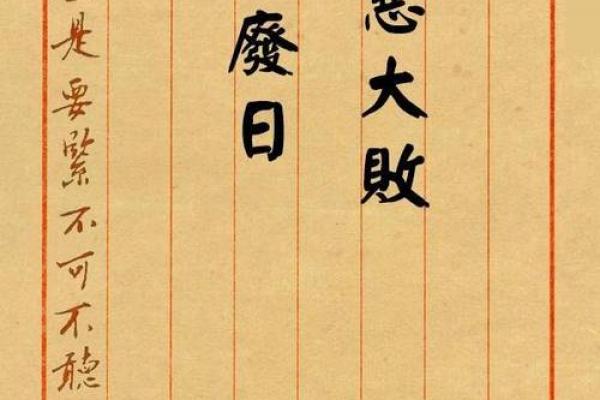 大敗
廢日
是要緊不可不聽